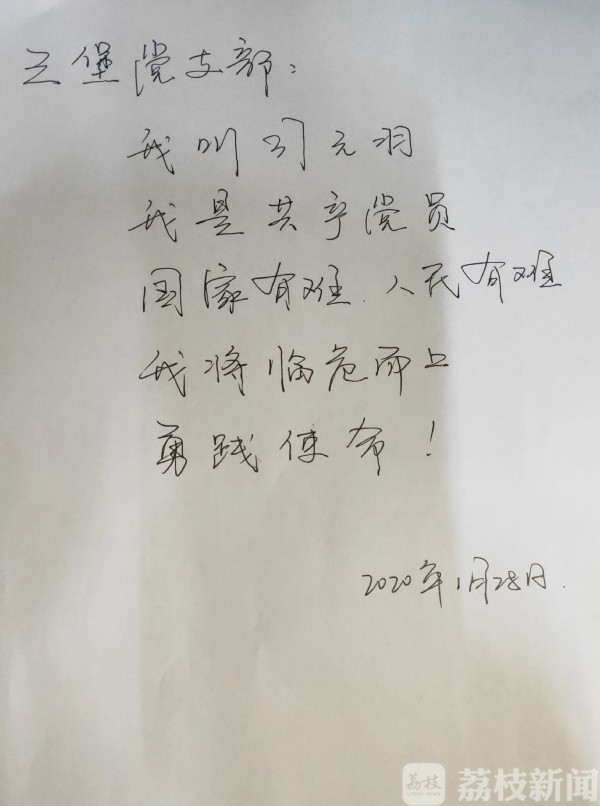 三堡党支部：
我叫司元羽
我是共产党员
国家有难.人民有难
我将临危而上
勇践使命！
2020年1月28日.
荔枝 荔枝新闻